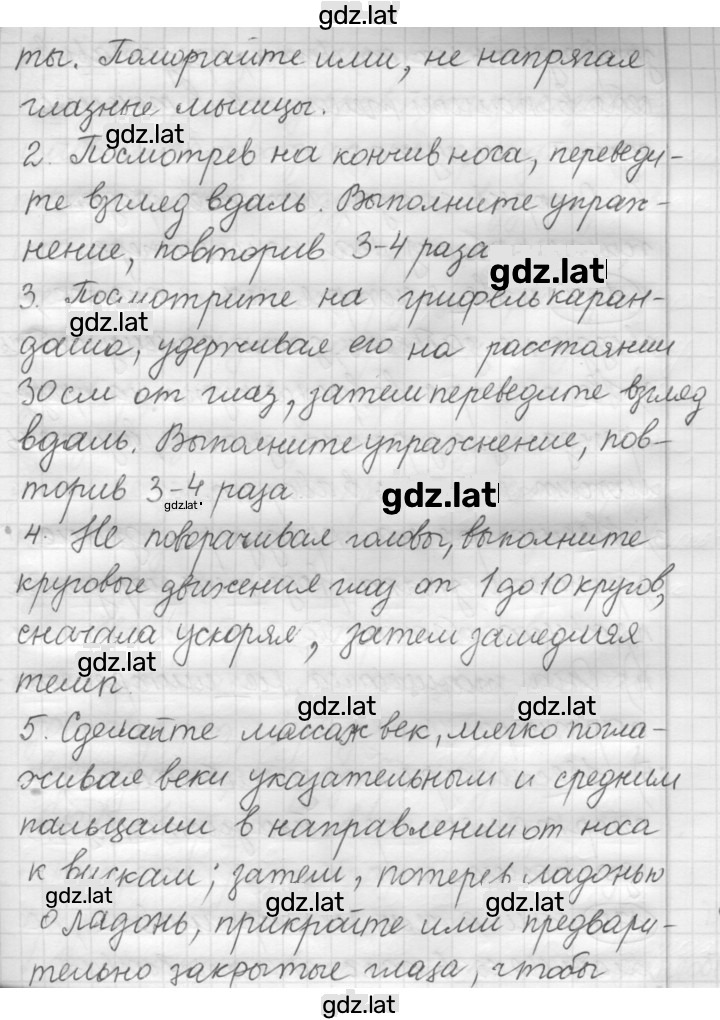 gdz.lat
ты. Поморгайте ими, не напрягая
глазные мышцы.
gdz.lat
2. Посмотрев на кончив носа, переведи-
те взгляд вдаль. Выполните упраж-
нение, повторив 3-4 раза
gdz.lat
3. Посмотрите на грифель каран-
gdz.lat
даша, удерживая его на расстоянии
30 см от глаз, затем переведите взгляд
вдаль. Выполните упражнение, пов-
торив 3-4 раза
gdz.lat
gdz.lat
4. Не поворачивая головы, выполните
круговые движения глаз от 1 до 10 кругов,
сначала ускоряя, затем замедляя
gdz.lat
темп.
gdz.lat
gdz.lat
5. Сделайте массаж век, мягко погла-
живая веки указательным и средним
пальцами в направлении от носа
к вискам; затем, потерев ладонью
gdz.lat
gdz.lat
gdz.lat
о ладонь, прикройте ими предвари-
тельно закрытые глаза, чтобы
gdz.lat